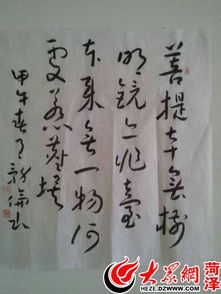 菩提本無樹
明鏡亦非臺
本來無一物何
處惹塵埃
甲午春月
大众网
菏泽
HEZE.DZWWW.COM